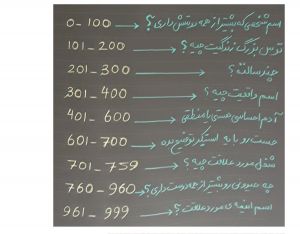 0-100 → اسم شخصی که بیشتر از همه دوستش داری؟
101-200 → ترس بزرگ زندگیت چیه؟
201-300 → چند سالته؟
301-400 → اسم واقعیت چیه؟
401-600 → آدم احساسی هستی یا منطقی
601-700 → حست رو با یه استیکر توضیح بده
701-759 → شغل مورد علاقت چیه؟
760-960 → چه حیوونی رو بیشتر از همه دوست داری؟
961-999 → اسم انیمه ی مورد علاقت؟